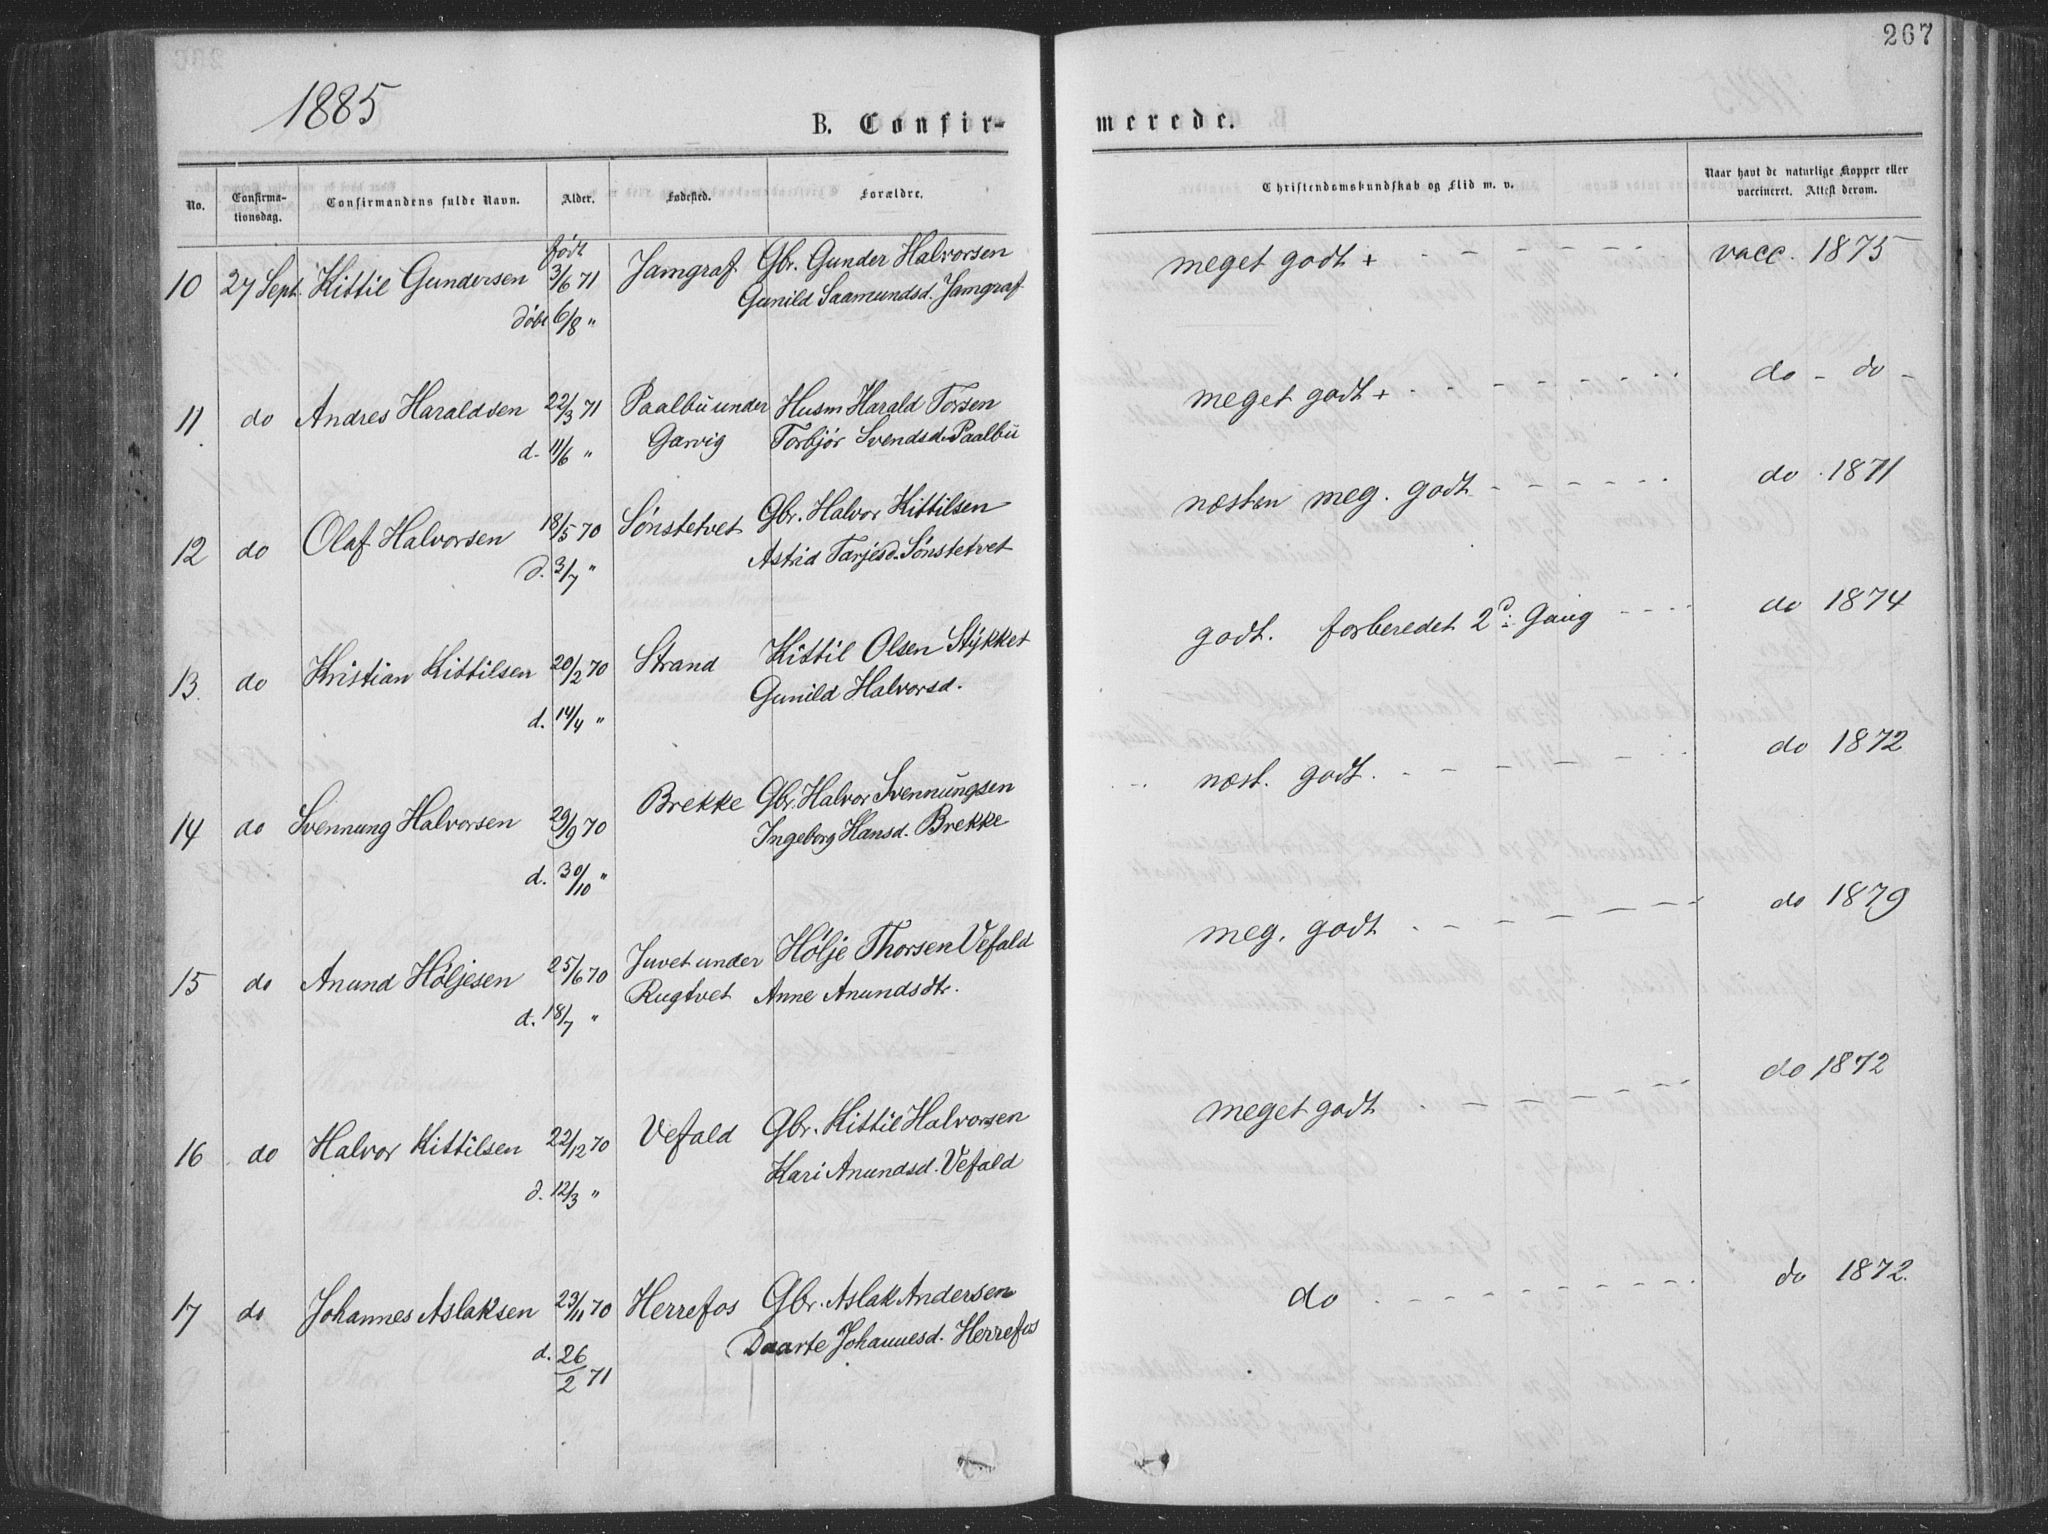 267
1885
B. Confir-
merede.
No.
Confirma-
tionsdag.
Confirmandens fulde Navn.
Alder.
Fødested.
Forældre.
Christendomskundskab og Flid m. v.
Naar havt de naturlige Kopper eller
vaccineret. Attest derom.
født
10 27 Sept. Kittil Gundersen 3/6 71 Jamgraf. Gbr. Gunder Halvorsen meget godt + vacc. 1875
døbt 6/8 " Gunild Saamundsd. Jamgraf
11 do Andres Haraldsen 22/3 71 Paalbu under Husm Harald Torsen meget godt + do - do -
d. 11/6 " Garvig Torbjør Svendsd. Paalbu
12 do Olaf Halvorsen 18/5 70 Sønstetvet Gbr. Halvor Kittilsen næsten meg. godt do 1871
d. 3/7 " Astrid Tarjesd. Sønstetvet
13. do Kristian Kittilsen 20/2 70 Strand Kittil Olsen Stykket godt. forberedet 2d Gang do 1874
d. 14/4 " Gunild Halvorsd.
14 do Svennung Halvorsen 29/9 70 Brekke Gbr. Halvor Svennungsen næst. godt. do 1872
d. 30/10 " Ingeborg Hansd. Brekke
15 do Anund Høljesen 25/6 70 Juvet under Hølje Thorsen Vefald meg. godt do 1879
d. 18/7 " Rugtvet Anne Anundsdtr.
16 do Halvor Kittilsen 22/12 70 Vefald Gbr. Kittil Halvorsen meget godt do 1872
d. 12/3 " Kari Anundsd. Vefald
17 do Johannes Aslaksen 23/11 70 Herrefos Gbr. Aslak Andersen do do 1872.
d. 26/2 71 Daarte Johannesd. Herrefos